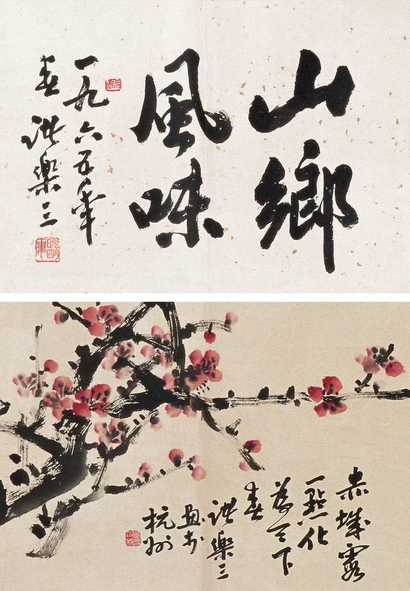 山鄉
風味
一九六五年
春 諸樂三
赤城霞
一點化
為天下
春
諸樂三
畫於
杭州